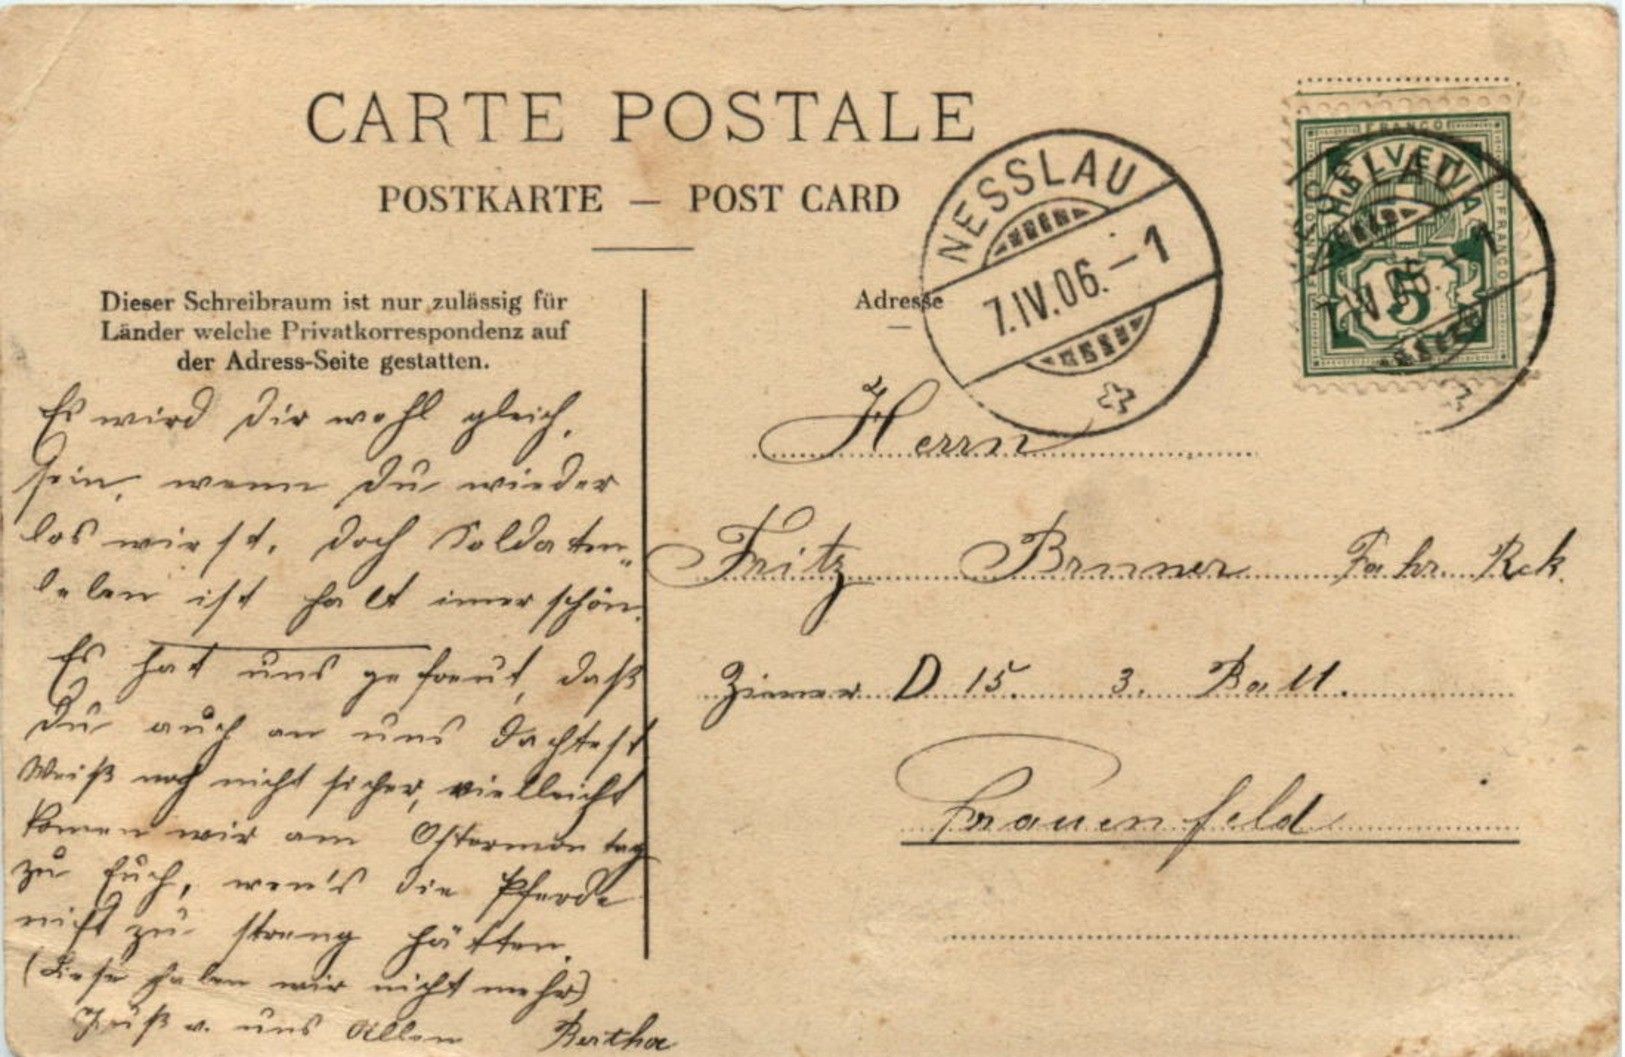 CARTE POSTALE
POSTKARTE — POST CARD
Dieser Schreibraum ist nur zulässig für
Länder welche Privatkorrespondenz auf
der Adress-Seite gestatten.
Es wird Dir wohl gleich
sein, wenn Du wieder
los wirst, doch Soldaten-
leben ist halt imer schön.
Es hat uns gefreut, daß
Du auch an uns dachtest
Weiß noch nicht sicher, vielleicht
komen wir am Ostermontag
zu Euch, wen's die Pferde
nicht zu streng hätten.
(Diese haben wir nicht mehr)
Gruß v. uns Allen Bertha
Adresse
Herrn
Fritz Brunner Fahr. Rek.
Zimer D 15. 3. Batt.
Frauenfeld
NESSLAU
7.IV.06.–1
FRANCO
HELVETIA
FRANCO
5